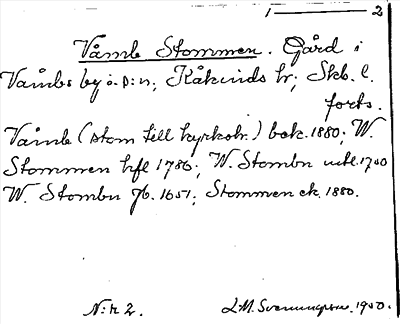 1 ——— 2
Våmb Stommen. Gård i
Våmbs by o. s:n; Kåkinds hr; Skb. l.
forts.
Våmb (stom till kyrkohr.) bok. 1880; W.
Stommen hfl 1786; W. Stombn 1700
W. Stombn Jb. 1651; Stommen ek. 1880.
N:r 2. L. M. Svenungsson. 1900.